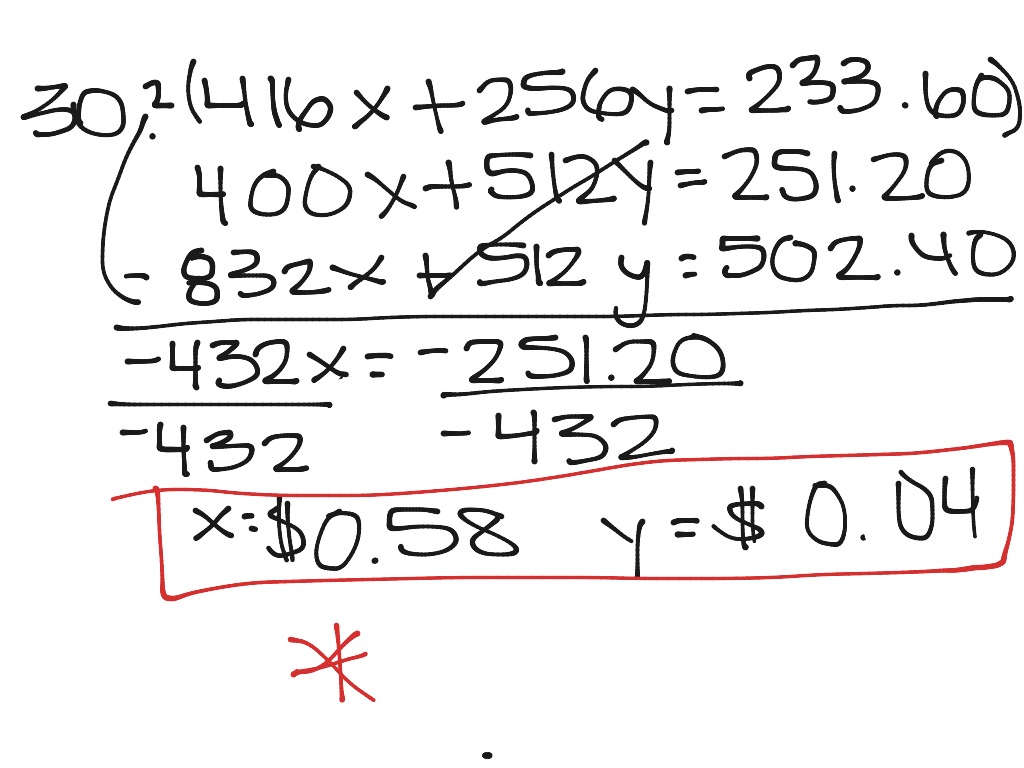 30. 2(416x + 256y = 233.60)
400x + 512y = 251.20
- 832x + 512 y = 502.40
-432x = -251.20
-432 -432
x = $0.58 y = $0.04
*